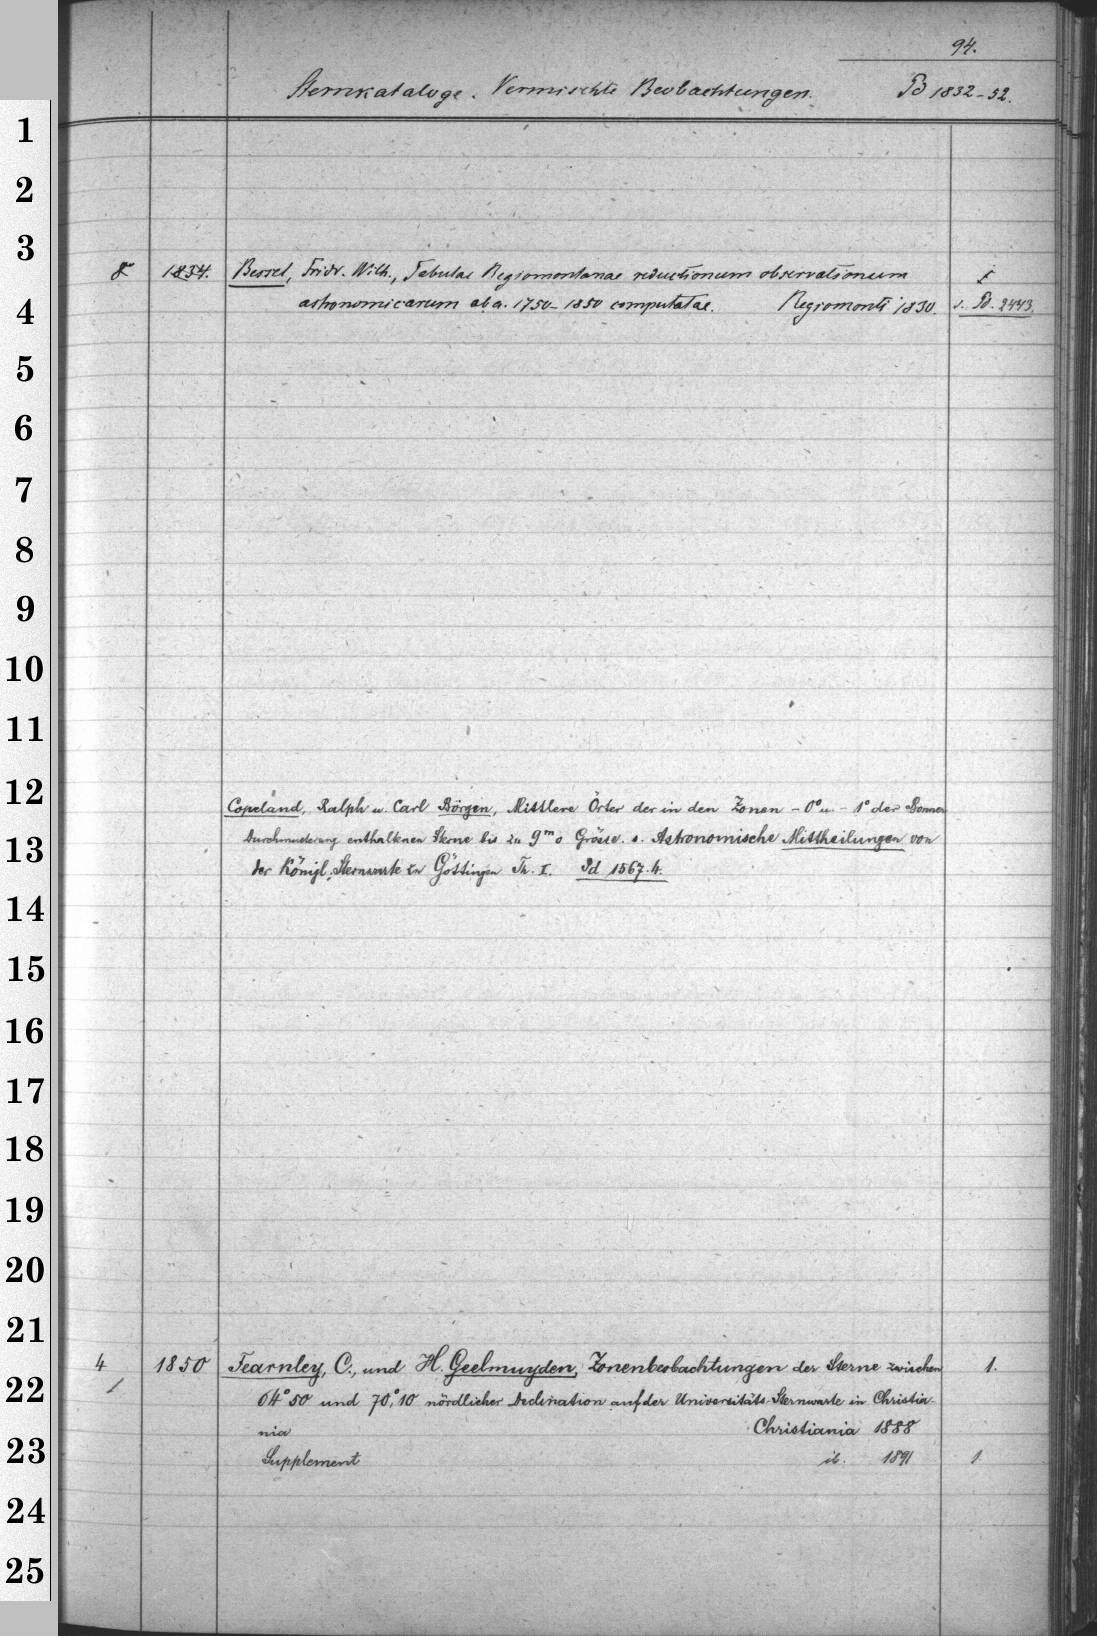 94.
Sternkataloge. Vermischte Beobachtungen. Pd 1832-52.
1
2
3
8 1834. Bessel, Fridr. Wilh., Tabulae Regiomontanae reductionum observationum 1
4
astronomicarum ab a. 1750-1850 computatae. Regiomonti 1830. s. Pd. 2443.
5
6
7
8
9
10
11
12
Copeland, Ralph u. Carl Börgen, Mittlere Örter der in den Zonen - 0° u. - 1° der Bonner
13
Durchmusterung enthaltenen Sterne bis zu 9m 0 Grösse. s. Astronomische Mittheilungen von
der Königl. Sternwarte zu Göttingen Th. I. Pd 1567.4.
14
15
16
17
18
19
20
21
4 1850 Fearnley, C., und H. Geelmuyden, Zonenbeobachtungen der Sterne zwischen 1.
22
64° 50 und 70° 10 nördlicher Declination auf der Universitäts-Sternwarte in Christia-
nia Christiania 1888
23
Supplement ib. 1891 1
24
25